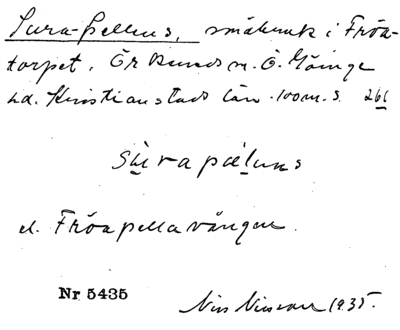 Sura-Pellens, småbruk i Fröa-
torpet. Örkeneds sn. Ö. Göinge
hd. Kristianstads län. 100 m. S. 261
Sùrapæluns
el. Fröapellavången.
Nr 5435
Nils Nilsson 1935.